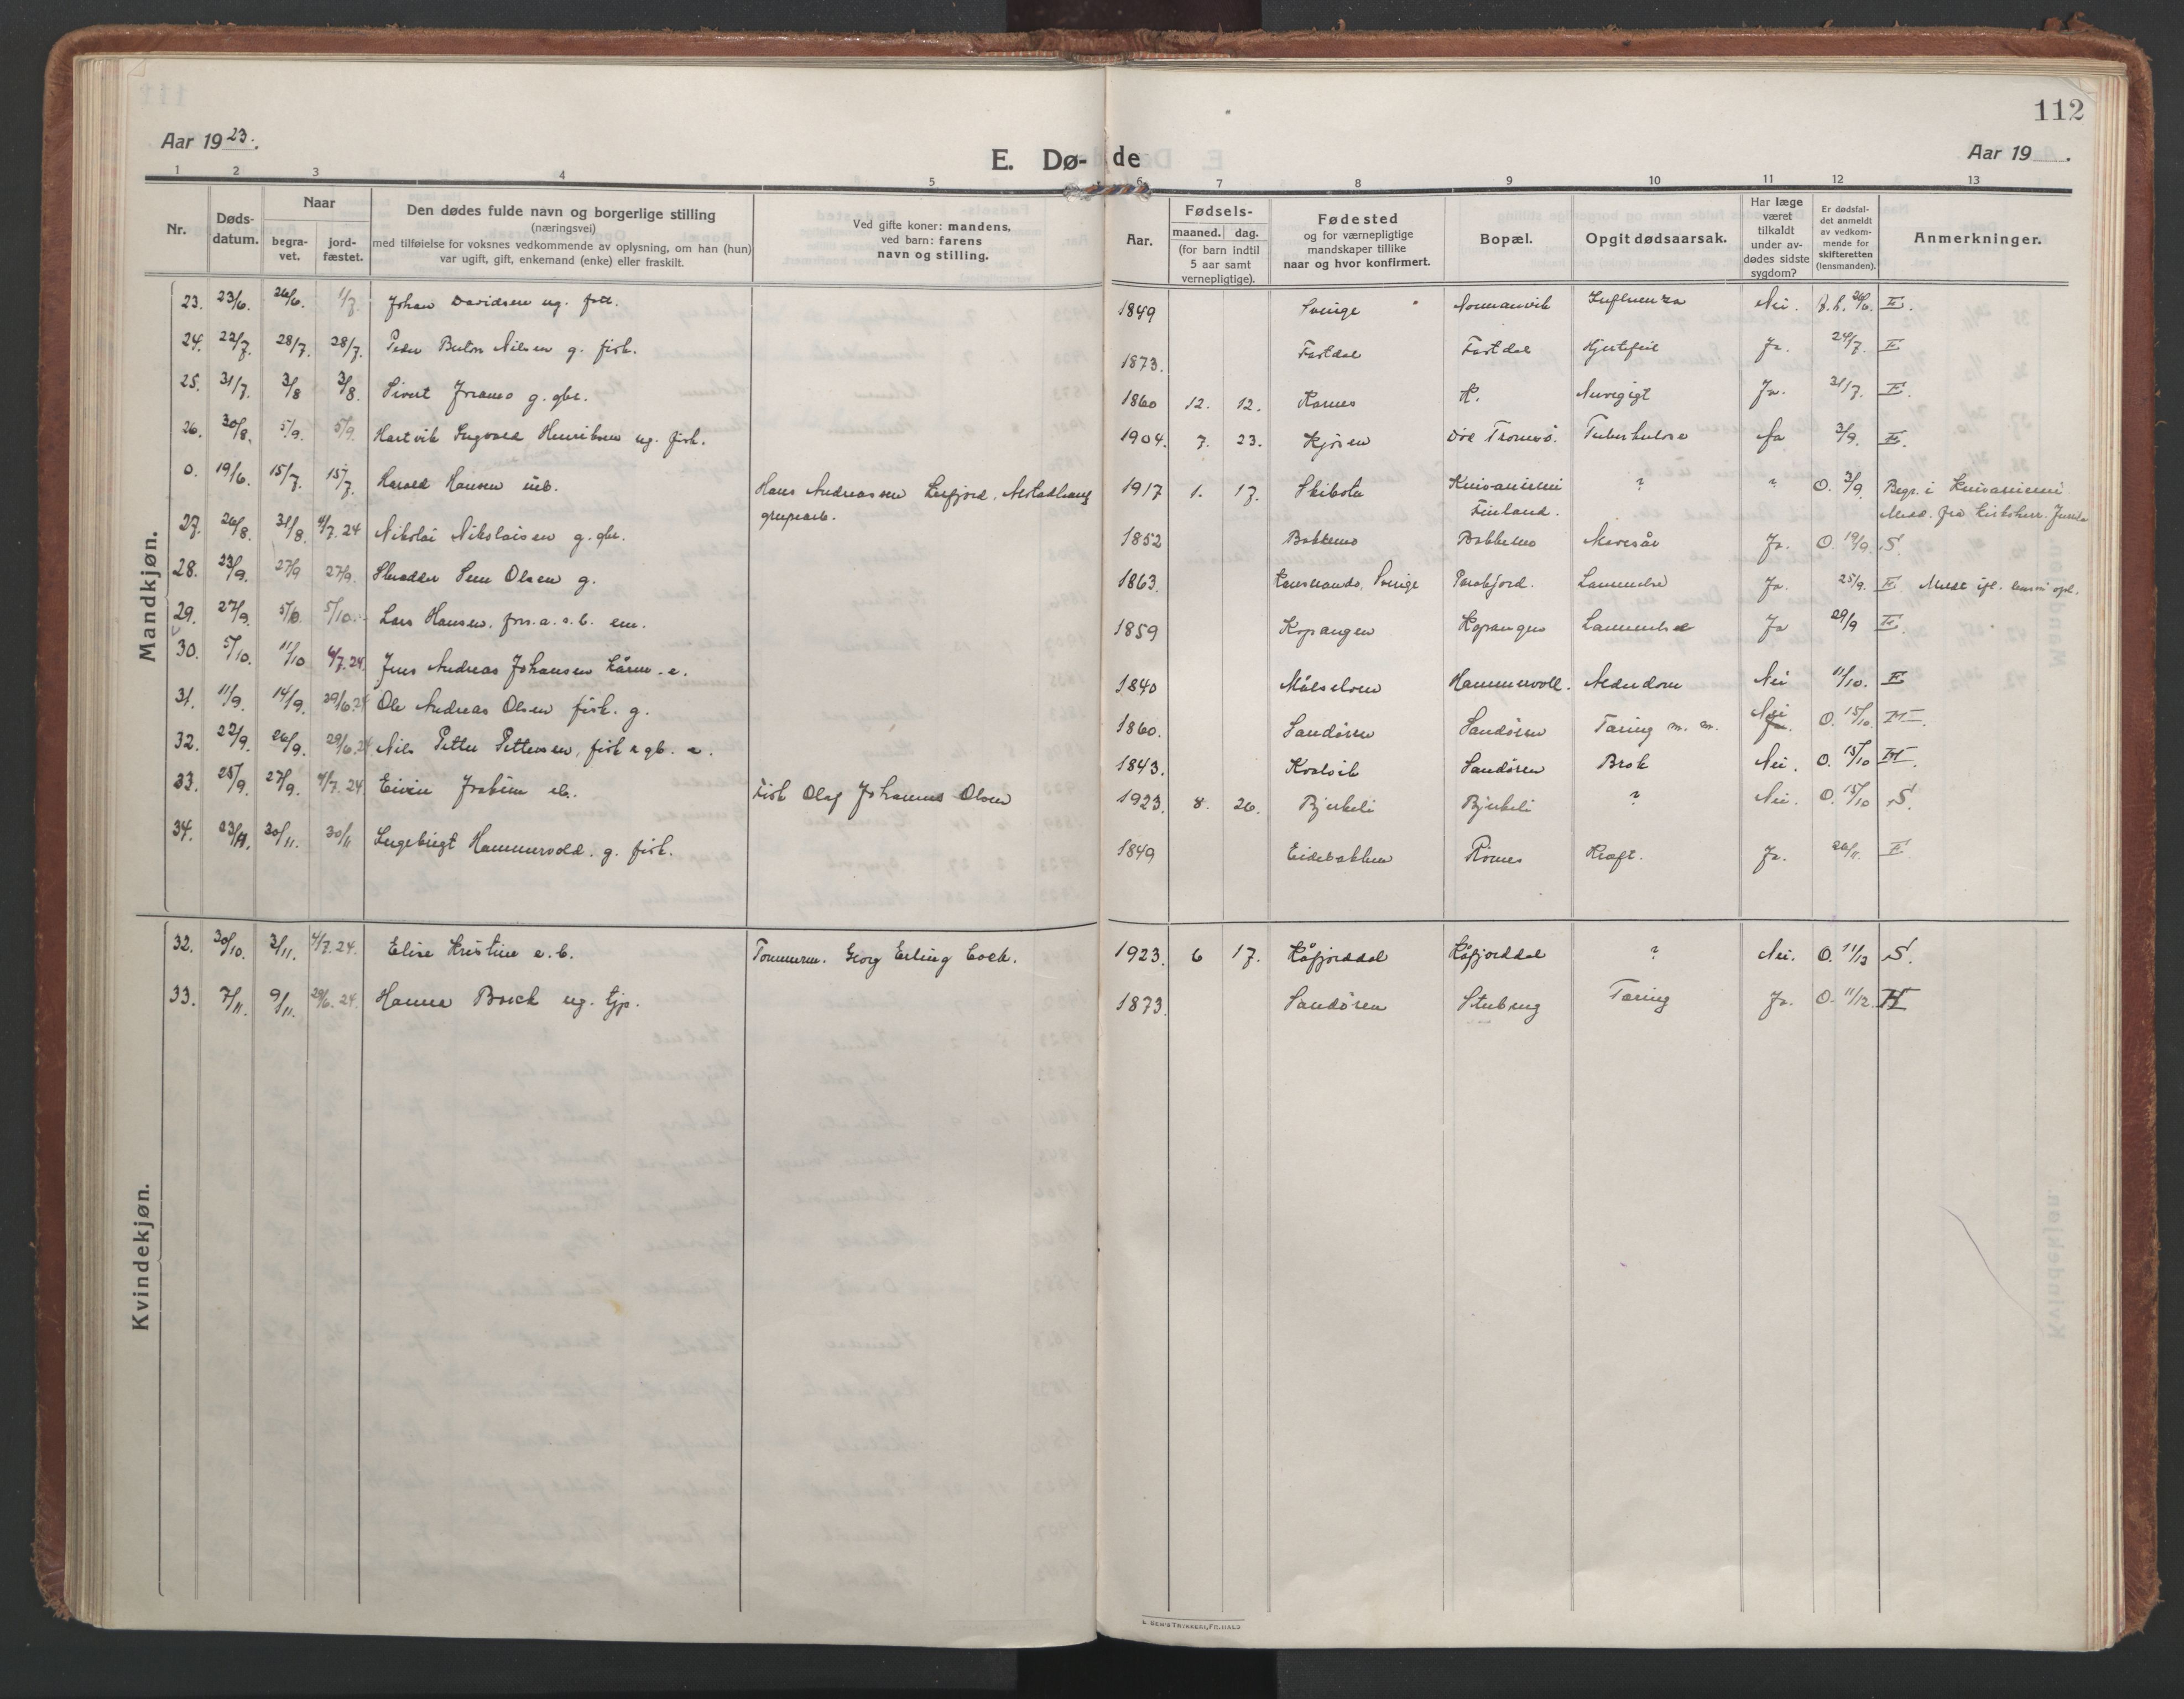 112
Aar 1923.
E. Dø-de
Aar 19 .
1 2 3 4 5 6 7 8 9 10 11 12 13
Nr.
Døds-
datum.
Naar
begra-
vet.
jord-
fæstet.
Den dødes fulde navn og borgerlige stilling
(næringsvei)
med tilføielse for voksnes vedkommende av oplysning, om han (hun)
var ugift, gift, enkemand (enke) eller fraskilt.
Ved gifte koner: mandens,
ved barn: farens
navn og stilling.
Aar.
Fødsels-
maaned. dag.
(for barn indtil
5 aar samt
vernepligtige).
Fødested
og for værnepligtige
mandskaper tillike
naar og hvor konfirmert.
Bopæl.
Opgit dødsaarsak.
Har læge
været
tilkaldt
under av-
dødes sidste
sygdom?
Er dødsfal-
det anmeldt
av vedkom-
mende for
skifteretten
(lensmanden).
Anmerkninger.
Mandkjøn.
23. 23/6. 26/6. 1/7. Johan Davidsen ug. 1849 Sverige Nomanvik Influenza Nei. 26/6. E.
24. 22/7. 28/7. 28/7. Peder Berton Nilsen g. fisk. 1873. Fastdal Fastdal Hjertefeil Ja. 24/7. E
25. 31/7. 3/8 3/8. Sivert Joramo g. gbr. 1860 12. 12. Karnes K. Nervegigt Ja. 31/7. E.
26. 30/8. 5/9. 5/9. Hartvik Ingvald Henriksen ug. fisk. 1904. 7. 23. Kjosen Tromsø. Tuberkulose Ja 3/9. E.
0. 19/6. 15/7. 15/7. Harald Hansen Hans Andreassen 1917 1. 17. Skibotn Knivaniemi ? " O. 3/9. Begr. i Knivaniemi
Finland. Medd. fra
27. 26/8. 31/8. 4/7. 24 Nikolai Nikolaisen g. gbr. 1852 Bakkemo Bakkemo Mavesår Ja. O. 19/9. S.
28. 23/9. 27/9 27/9. Skrædder Olsen g. 1863. Sverige Lammelse Ja. 25/9. E
29. 27/9. 5/10. 5/10. Lars Hansen. em. 1859 Kopangen Kopangen Lammelse Ja 29/9 E.
30. 5/10. 11/10 4/7. 24. Jens Andreas Johansen e. 1840 Målselven Hammervoll. Alderdom Nei 11/10. E
31. 11/9. 14/9. 29/6. 24 Ole Andreas Olsen fisk. g. 1860. Sandøren Sandøren Tæring m. m. Nei O. 15/10. H.
32. 22/9. 26/9. 29/6. 24 Nils Petter Pettersen, fisk e. 1843. Kvalvik Sandøren Brok Nei. O. 15/10 H.
33. 25/9. 27/9. 4/7. 24. Eivin Joakim Fisk Olaf Johannes Olsen 1923. 8. 26. Bjerkeli Bjerkeli ? Nei. O. 15/10 S.
34. 23/11. 30/11. 30/11 Ingebrigt Hammervold. g. fisk. 1849 Eidebakken Rørnes Kræft. Ja. 26/11. E
Kvindekjøn.
32. 30/10. 3/11. 4/7. 24. Elise Kristine e. b. Tømmerm. Georg Erling 1923. 6 17. Kåfjorddal Kåfjorddal ? Nei. O. 11/12 S.
33. 7/11. 9/11. 29/6. 24. Hanna Baick ug. tjp. 1873. Sandøren Stubeng Tæring Ja. O. 11/12. H